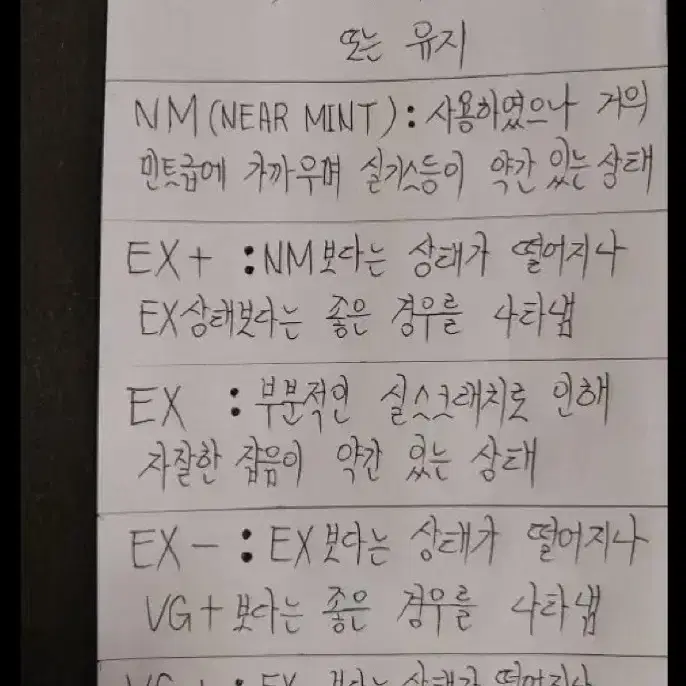 또는 유지
NM (NEAR MINT) : 사용하였으나 거의
민트급에 가까우며 실기스등이 약간 있는 상태
EX+ : NM보다는 상태가 떨어지나
EX상태보다는 좋은 경우를 나타냄
EX : 부분적인 실스크래치로 인해
자잘한 잡음이 약간 있는 상태
EX- : EX보다는 상태가 떨어지나
VG+보다는 좋은 경우를 나타냄